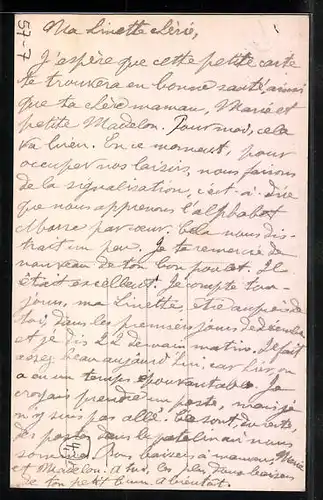 57-7
Ma Linette chérie,
J'espère que cette petite carte
te trouvera en bonne santé ainsi
que ta chère maman, Marie et
petite Madelon. Pour moi, cela
va bien. En ce moment, pour
occuper nos loisirs, nous faisons
de la signalisation, c'est-à-dire
que nous apprenons l'alphabet
Morse par cœur. Cela nous dis-
trait un peu. Je te remercie de
nouveau de ton bon poulet. Il
était excellent. Je compte tou-
jours, ma Linette, être auprès de
toi dans les premiers jours de
et je dis 22 demain matin. Il fait
assez beau aujourd'hui, car hier, on
a eu un temps épouvantable. Je
croyais prendre un poste, mais je
n'y suis pas allé. Ce sont, du reste,
des postes dans le patelin où nous
sommes. Bons baisers à maman, Marie
et Madelon. À toi, les plus doux baisers
de ton petit à bientôt.